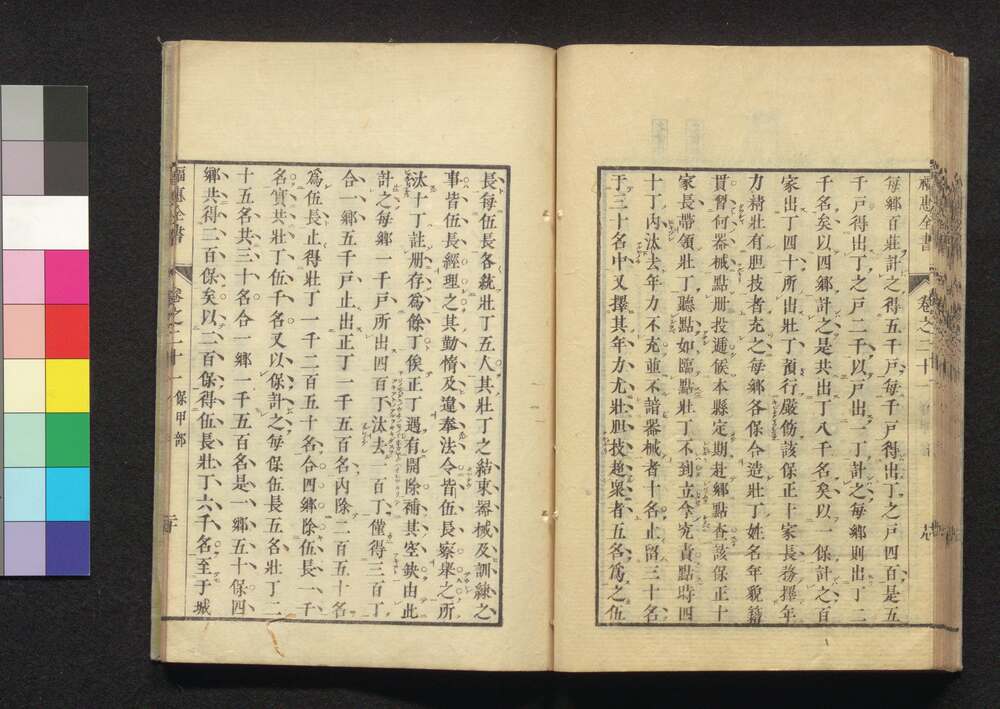 福惠全書 卷之二十
每鄉百莊計之得五千戸每千戸得出丁之戸四百是五
千戸得出丁之戸二千以戸出二丁計之每鄉則出丁二
千名矣以四鄉計之是共出丁八千名矣以一保計之百
家出丁四十所出壯丁預行嚴飭該保正十家長務擇年
力精壯有胆技者充之每鄉各保合造壯丁姓名年貌籍
貫習何器械點册投遞候本縣定期赴鄉點查該保正十
家長帶領壯丁聽點如臨點壯丁不到立拿究責點時四
十丁内汰去年力不充並不諳器械者十名止留三十名
于三十名中又擇其年力尤壯胆技超衆者五名爲之伍
長每伍長各統壯丁五人其壯丁之結束器械及訓練之
事皆伍長經理之其勤惰及違奉法令皆伍長察舉之所
汰十丁註册存爲餘丁俟正丁遇有開除補其空缺由此
計之每鄉一千戸所出四百丁汰去一百丁僅得三百丁
合一鄉五千戸止出正丁一千五百名内除二百五十名
爲伍長止得壯丁一千二百五十名合四鄉除伍長一千
名實共壯丁伍千名又以保計之每保伍長五名壯丁二
十五名共三十名合一鄉一千五百名是一鄉五十保四
鄉共得二百保矣以二百保得伍長壯丁六千名至于城
福惠全書 卷之二十一 保甲部